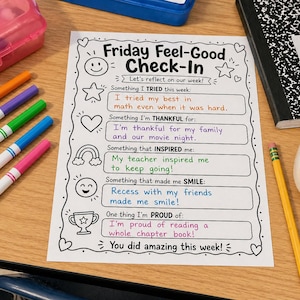 Friday Feel-Good
Check-In
Let's reflect on our week!
Something I TRIED this week:
I tried my best in
math even when it was hard.
Something I'm THANKFUL for:
I'm thankful for my family
and our movie night.
Something that INSPIRED me:
My teacher inspired me
to keep going!
Something that made me SMILE:
Recess with my friends
made me smile!
One thing I'm PROUD of:
I'm proud of reading a
whole chapter book!
You did amazing this week!